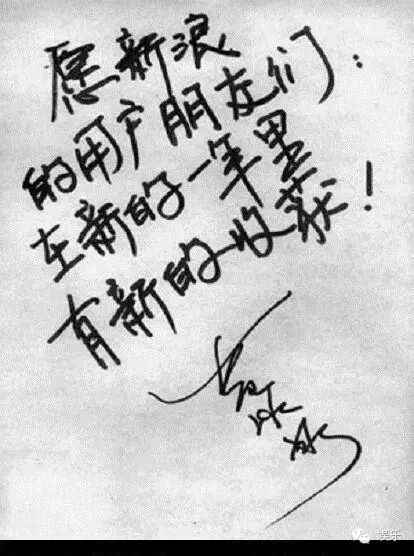 愿新浪
的用户朋友们:
在新的一年里
有新的收获!
娱乐